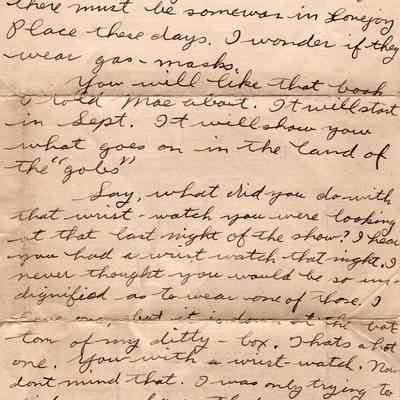 there must be somewar in Lovejoy
Place these days. I wonder if they
wear gas-masks.
You will like that book
I told Mae about. It will start
in Sept. It will show you
what goes on in the land of
the "gobs"
Say, what did you do with
that wrist-watch you were looking
at that last night of the show? I hear
you had a wrist watch that night. I
never thought you would be so un-
dignified as to wear one of those. I
have one, but it is down at the bot
tom of my ditty-box. Thats a hot
one. You with a wrist-watch. Now
dont mind that. I was only trying to